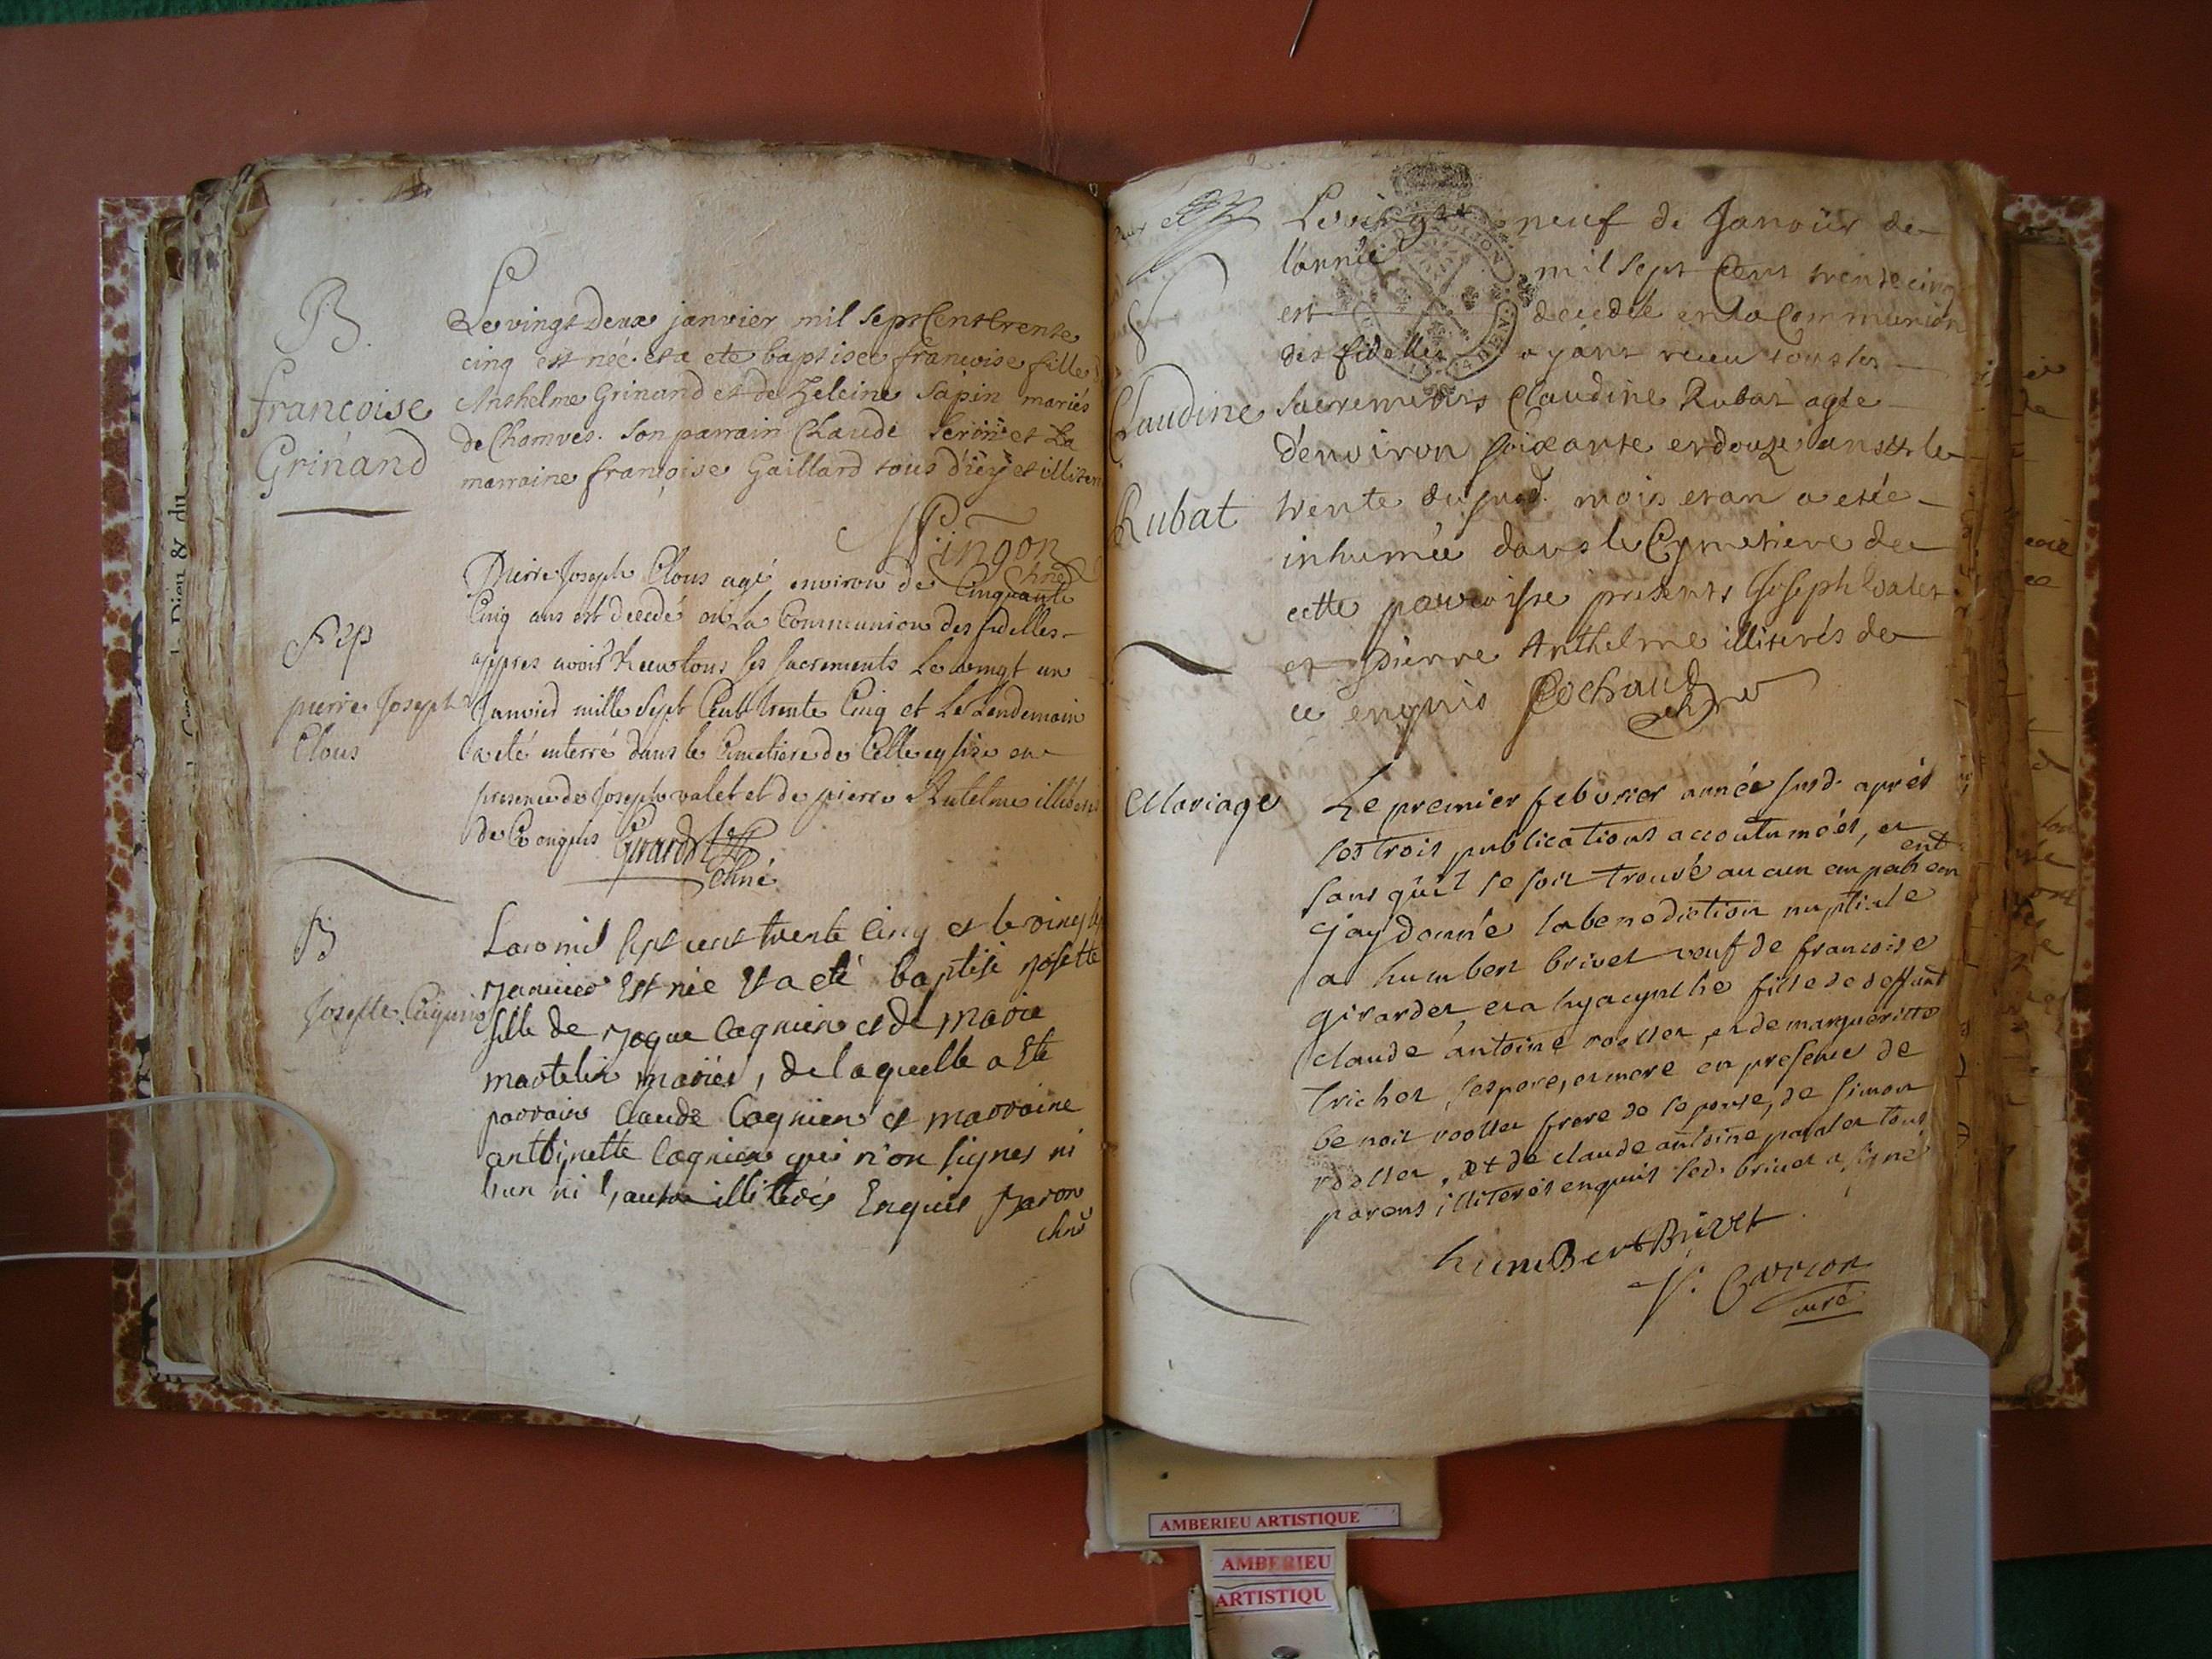 B.
francoise
Grinand
Le vingt Deux janvier mil Sept Cens trente
cinq est née et a ete baptisee francoise fille
Anthelme Grinand et de Heleine Sapin mariés
de Chamves. Son parrain Claude et La
marraine françoise Gaillard tous d'icy et illiter
Pingon
Sep
pierre Joseph
Clous
Pierre Joseph Clous agé environ de Cinquante
Cinq ans est decedé en La Communion des fidelles
appres avoir Receu tous ses sacrements Le vingt un
Janvied mille Sept Cent trente Cinq et Le Lendemain
a eté enterré dans le Cimetiere de Cette eglise en
presence de Joseph valet et de pierre Antelme illiteres
de Ce enquis Girardet
chne
B
Josepte Cagnin
Lan mil sept cent trente Cinq et le vingt
Janvier Est née Et a eté baptisé Josette
fille de Jaque Cagnien et de Marie
martelin mariés, de laquelle a Ete
parrain Claude Cagnien et marraine
antoinette Cagnien qui n'on signes ni
l'un ni l'autre illiterés Enquis Maron
chne
Claudine
Rubat
Le vingt neuf de Janvier de
l'année mil Sept Cent trente cinq
est decedée en la Communion
des fidelles ayant receu tous les
sacrements Claudine Rubat agée
d'environ soixante et douze ans et le
trente dususd. mois et an a estée
inhumée dans le Cymetiere de
cette parroisse presents Joseph Valet
et pierre Anthelme illiterés de
ce enquis Cochaud
Mariage
Le premier febvrier année susd. aprés
les trois publications accoutumées, et
sans qu'il se soit trouvé aucun empechem
ent
j'ay donné la benediction nuptiale
a humbert brivet veuf de francoise
girardet, et a hyacynthe fille de deffunt
claude antoine rosset, et de marguéritte
trichet, ses pere, et mere en presence de
benoit rosset frere de l'epouse, de simon
rosset, et de claude antoine tous
parens illiterés enquis led. brivet a signé
humBert Brivet
curé
AMBERIEU ARTISTIQUE
AMBERIEU
ARTISTIQU